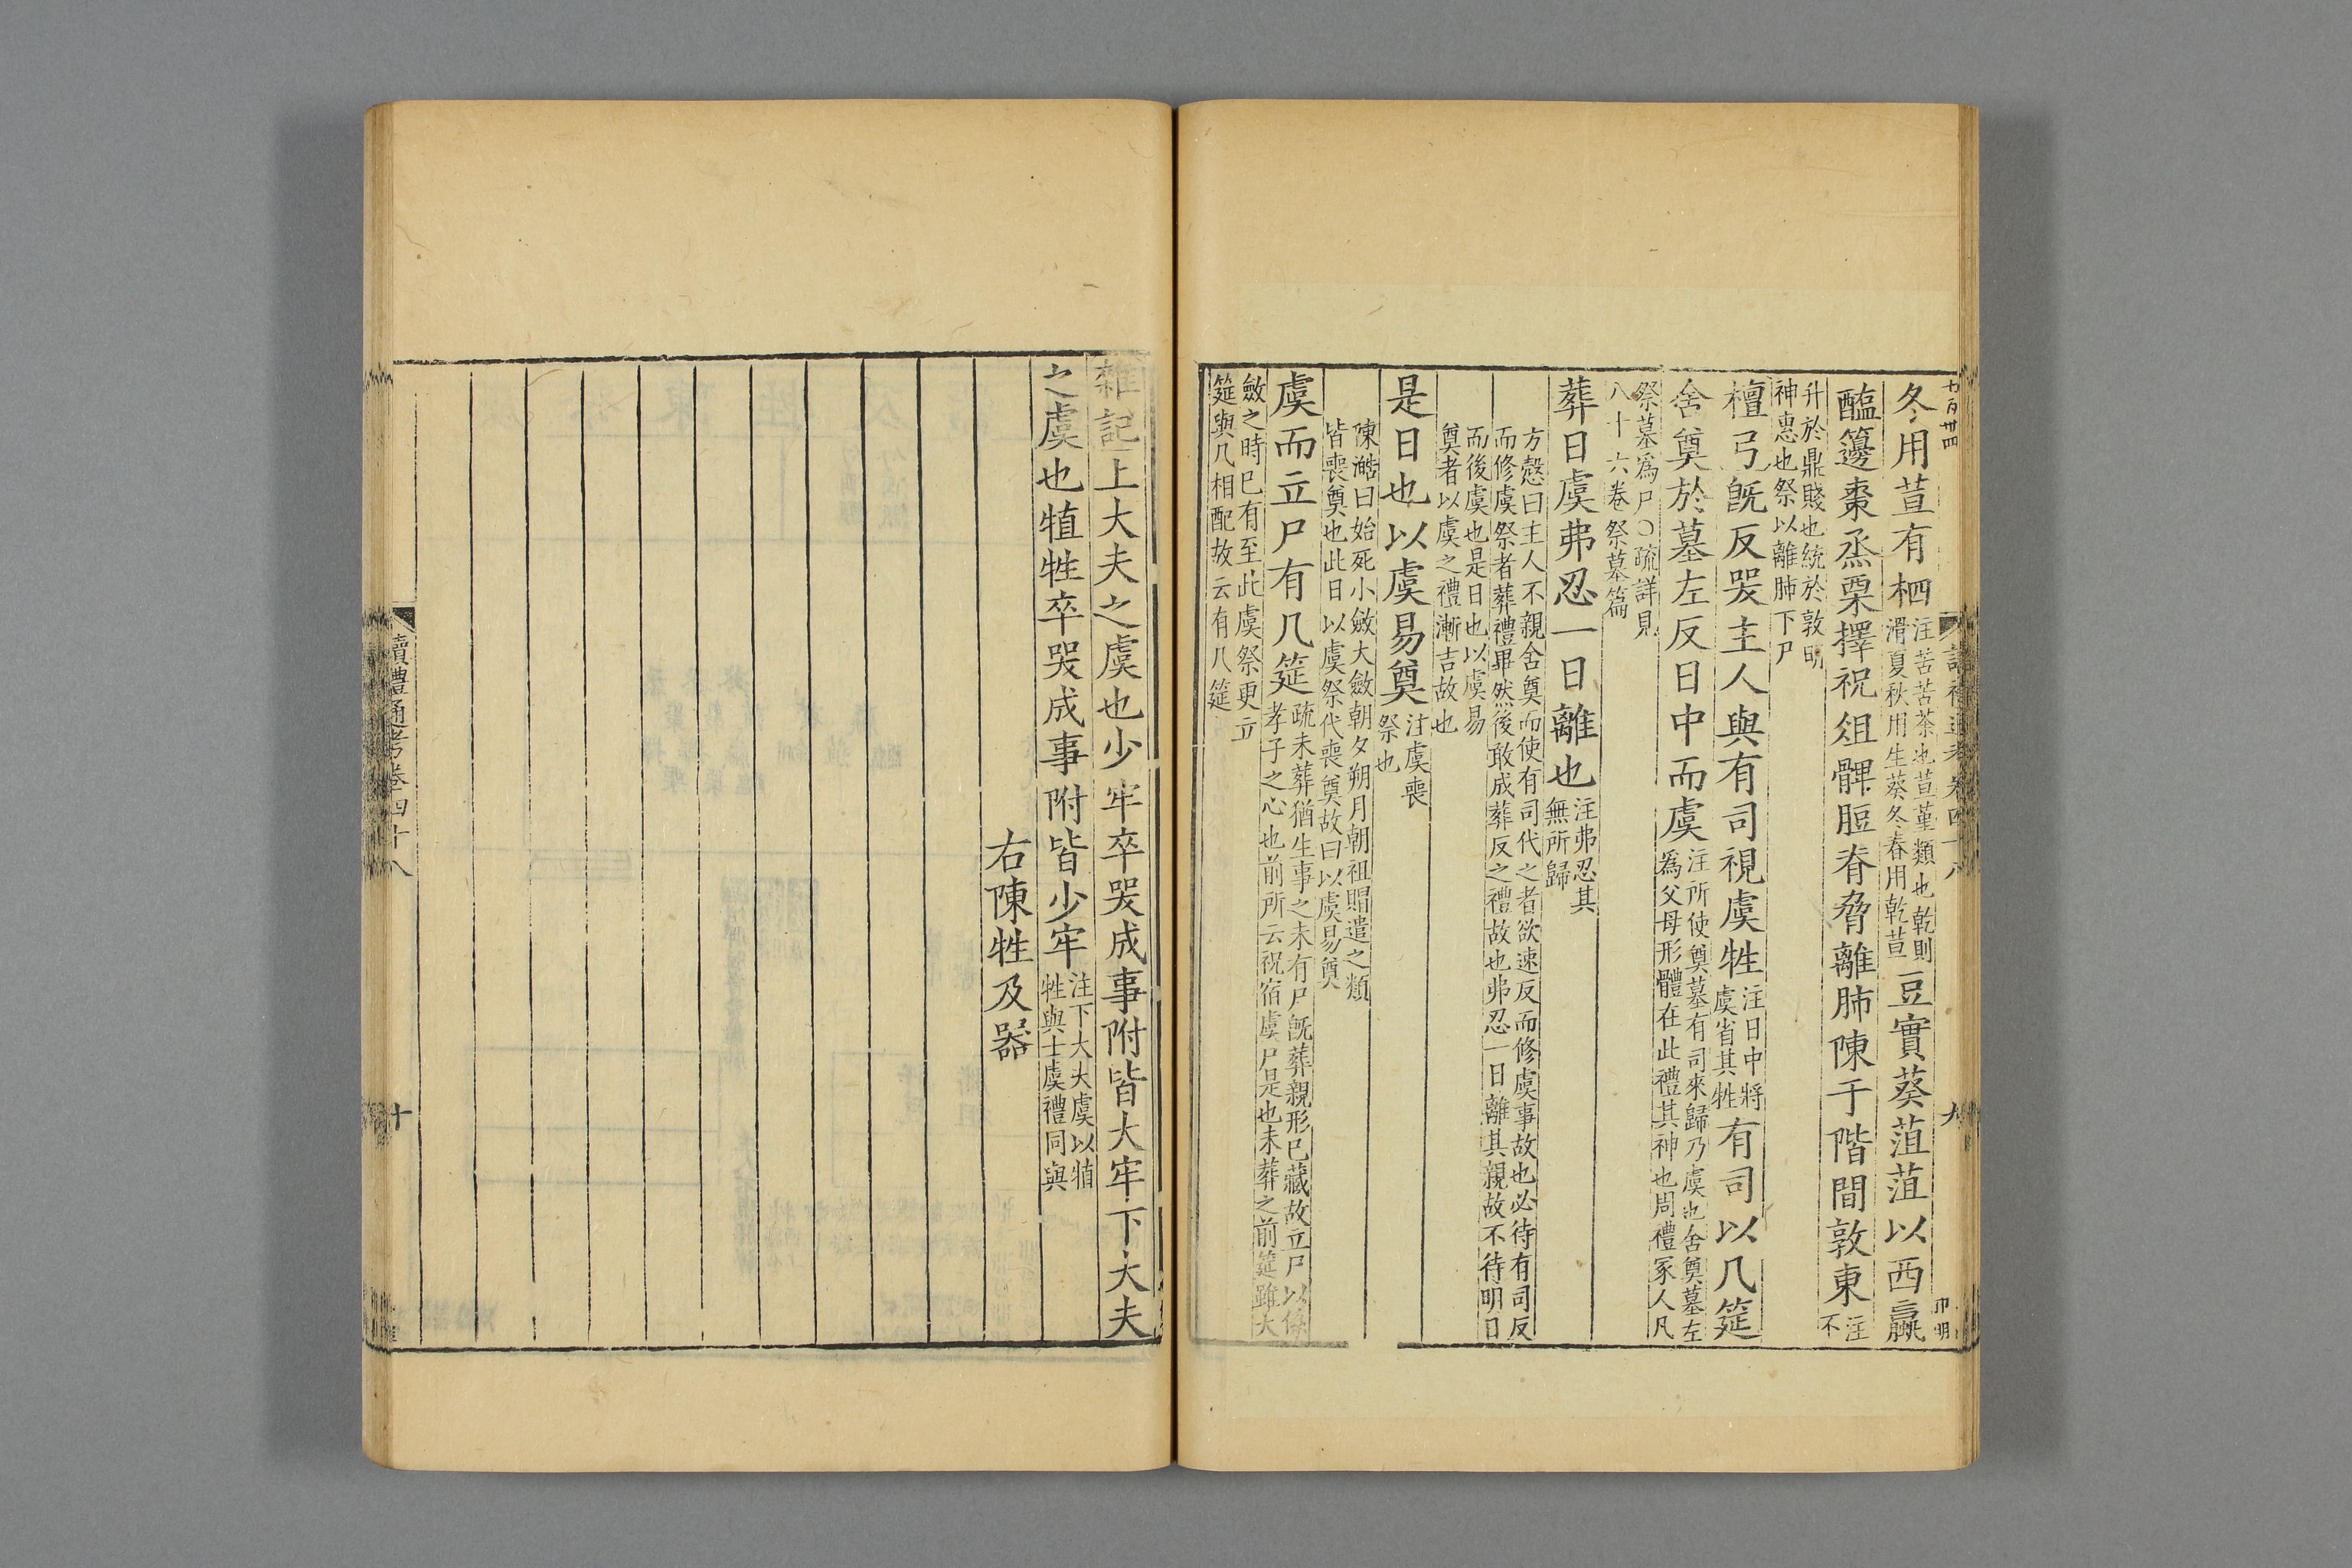 冬用荁有柶注苦苦荼也荁菫類也乾則滑夏秋用生葵冬春用乾荁豆實葵菹菹以西蠃
醢籩棗烝栗擇祝俎髀脰脊脅離肺陳于階間敦東注不
升於鼎賤也統於敦明
神惠也祭以離肺下尸
檀弓旣反哭主人與有司視虞牲注日中將虞省其牲有司以几筵
舍奠於墓左反日中而虞注所使奠墓有司來歸乃虞也舍奠墓左爲父母形體在此禮其神也周禮冢人凡
祭墓爲尸○疏詳見
八十六卷祭墓篇
葬日虞弗忍一日離也注弗忍其無所歸
方慤曰主人不親舍奠而使有司代之者欲速反而修虞事故也必待有司反
而修虞祭者葬禮畢然後敢成葬反之禮故也弗忍一日離其親故不待明日
而後虞也是日也以虞易
奠者以虞之禮漸吉故也
是日也以虞易奠注虞喪祭也
陳澔曰始死小斂大斂朝夕朔月朝祖賵遣之類
皆喪奠也此日以虞祭代喪奠故曰以虞易奠
虞而立尸有几筵疏未葬猶生事之未有尸旣葬親形已藏故立尸以係孝子之心也前所云祝宿虞尸是也未葬之前筵雖大
斂之時已有至此虞祭更立
筵與几相配故云有几筵
讀禮通考卷四十八
九
雜記上大夫之虞也少牢卒哭成事附皆大牢下大夫
之虞也犆牲卒哭成事附皆少牢注下大夫虞以犆牲與士虞禮同與
右陳牲及器
讀禮通考卷四十八
十